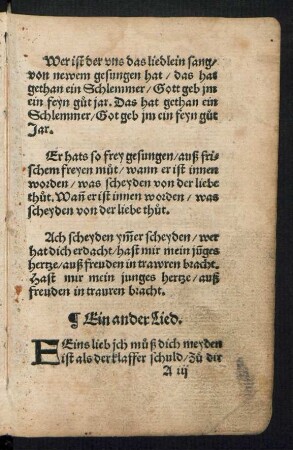 Wer ist der vns das liedlein sang/
von newem gesungen hat / das hat
gethan ein Schlemmer / Gott geb jm
ein feyn gůt jar. Das hat gethan ein
Schlemmer / Got geb jm ein feyn gůt
Jar.
Er hats so frey gesungen / auß fri-
schem freyen můt / wann er ist innen
worden / was scheyden von der liebe
thůt. Wañ er ist innen worden / was
scheyden von der liebe thůt.
Ach scheyden ym̃er scheyden / wer
hat dich erdacht / hast mir mein jůges
hertze / auß freuden in trawren bracht.
Hast mir mein junges hertze / auß
freuden in trauren bracht.
¶ Ein ander Lied.
EEins lieb jch můß dich meyden
ist als der klaffer schuld / Zů dir
A iij